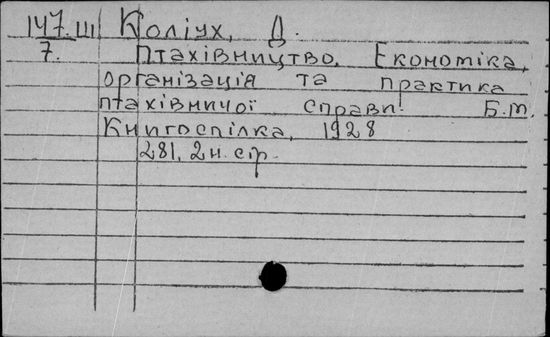 147.III Коліух, Д.
7. Птахівництво. Економіка,
організація та практика
птахівничої справи. Б.м.
Книгоспілка, 1928
281, 2 н. стр.